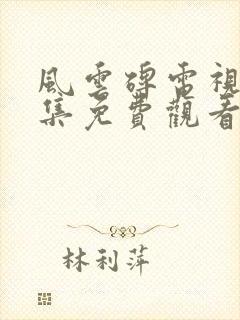 風雲磚電視
集免費觀看
林利萍